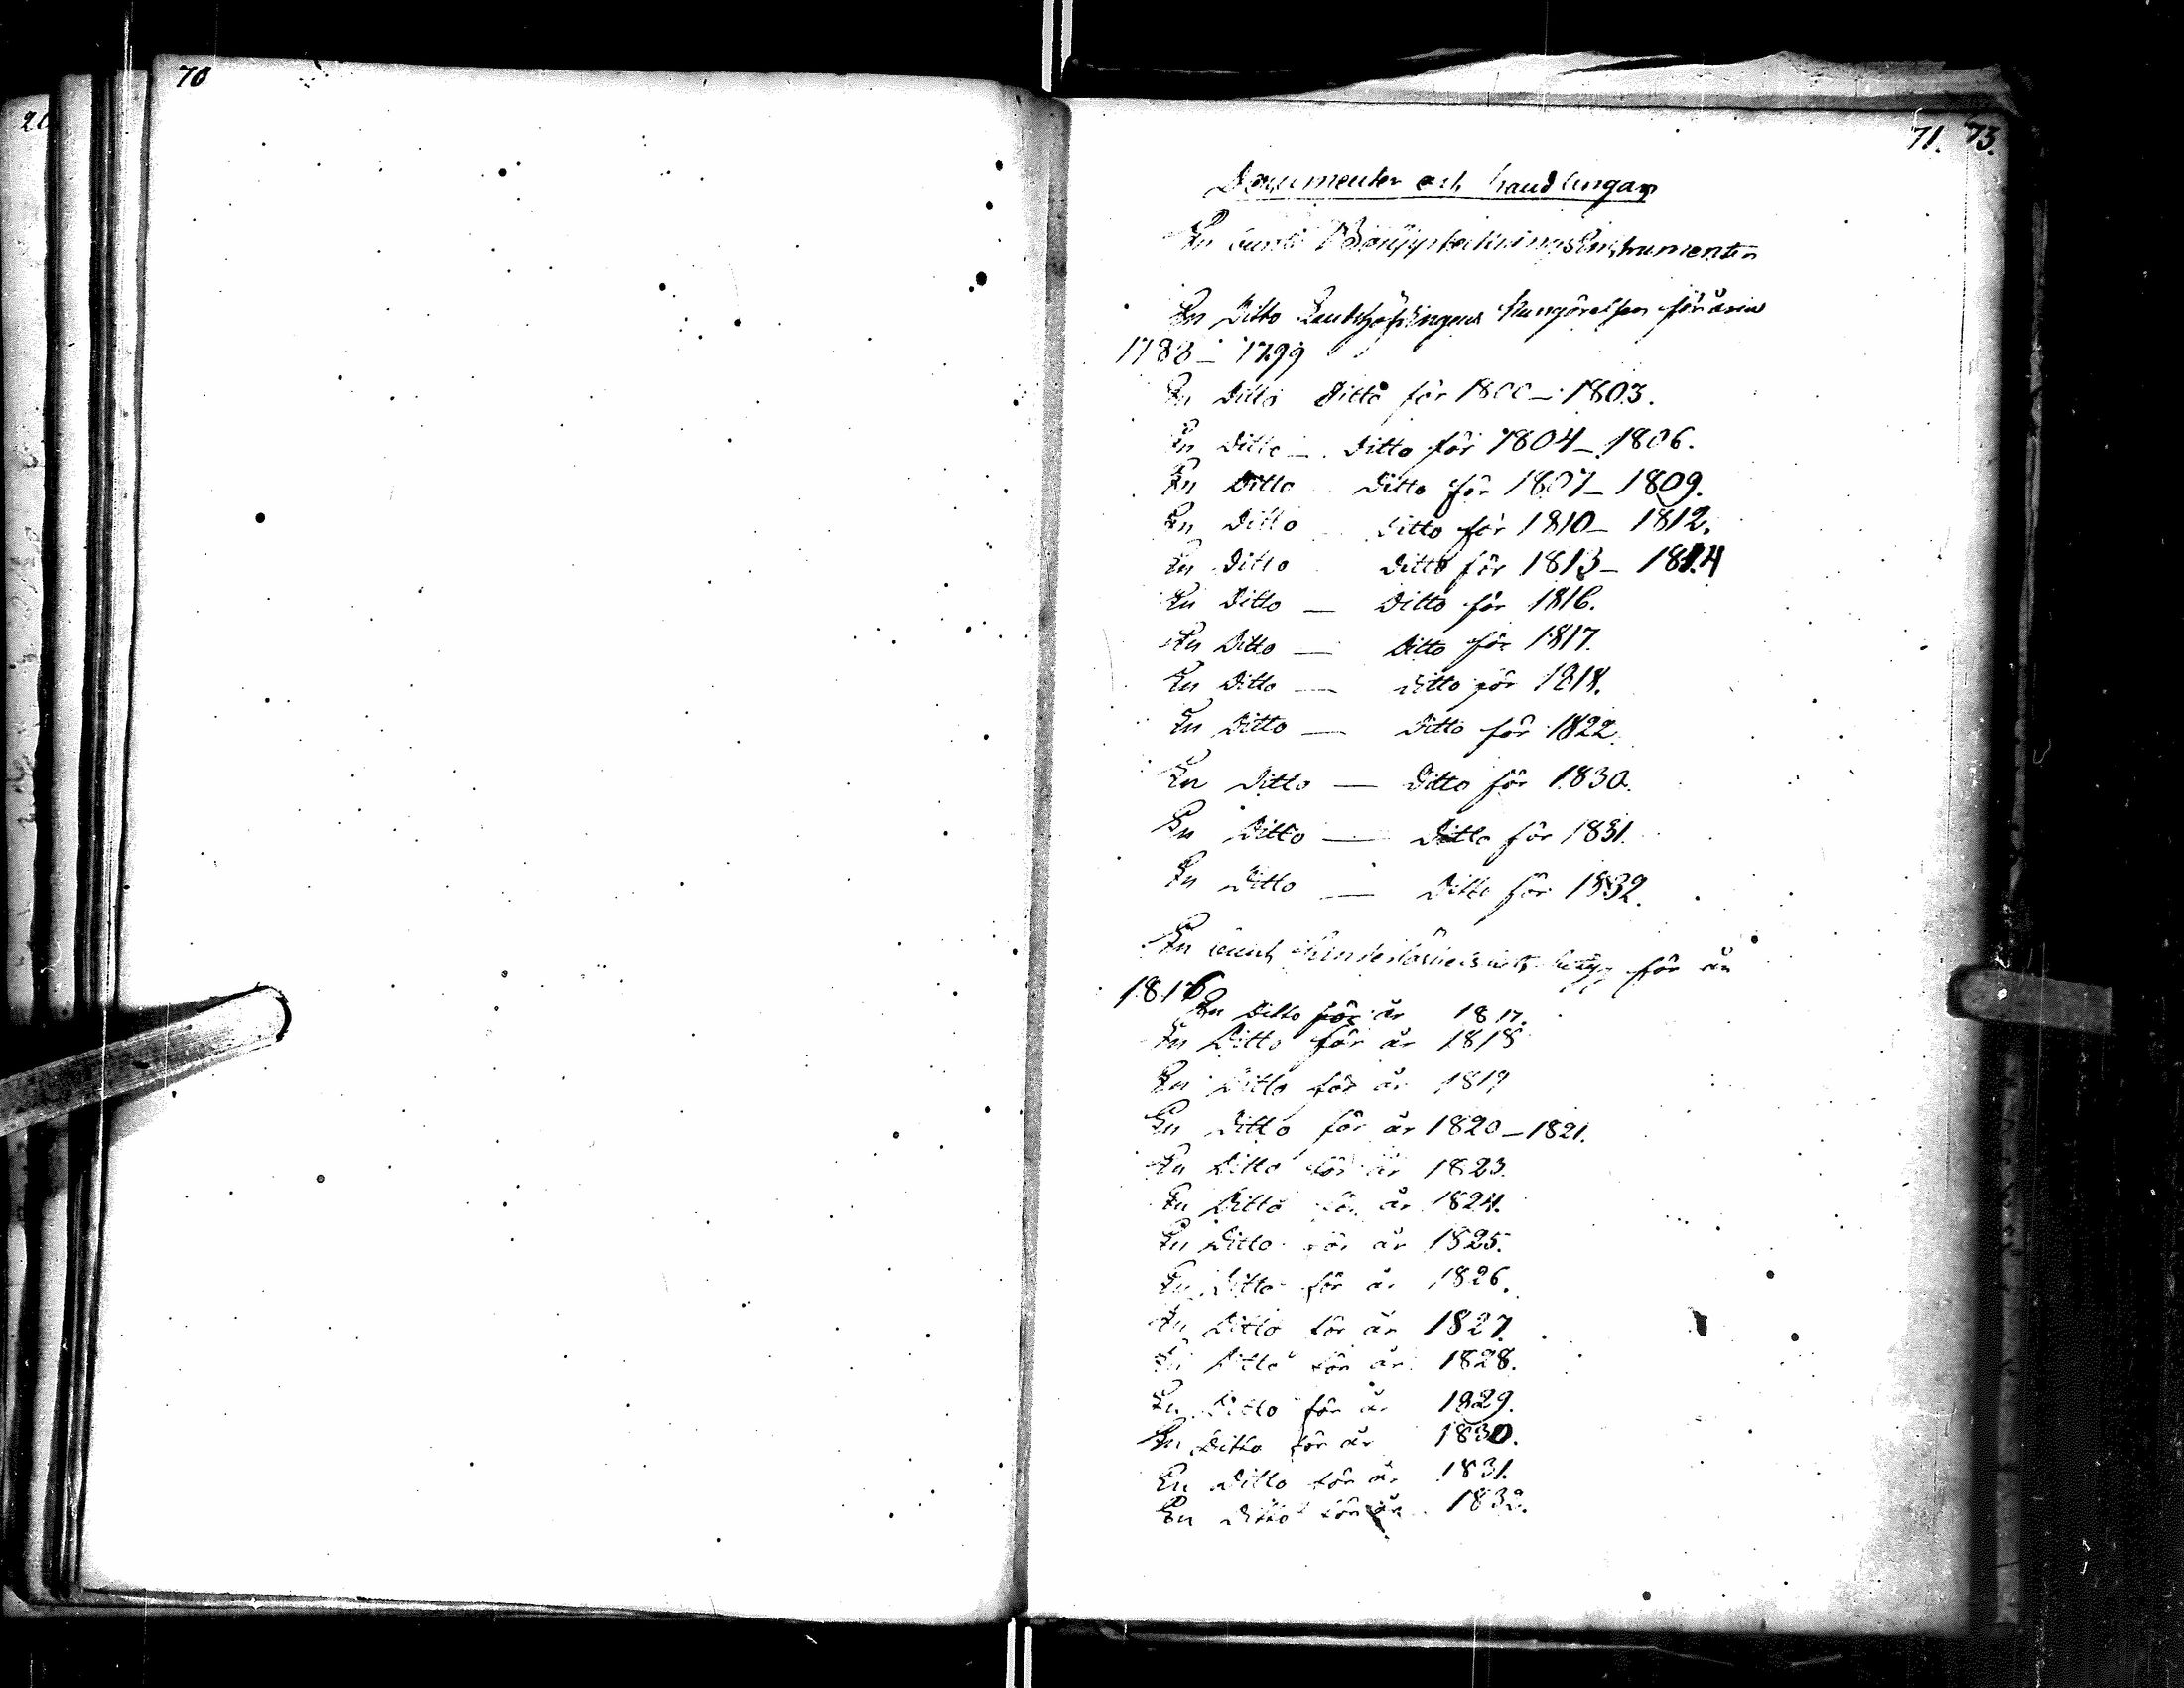 70
71. 73.
Documenter och handlingar
En bunt BouppteckningsInstrumenter
En Ditto Landshöfdingens Kungörelser för åren
1783 – 1799
En Ditto Ditto för 1800 – 1803.
En Ditto – Ditto för 1804 – 1806.
En Ditto Ditto för 1807 – 1809.
En Ditto Ditto för 1810 – 1812.
En Ditto Ditto för 1813 – 1814
En Ditto — Ditto för 1816.
En Ditto — Ditto för 1817.
En Ditto — Ditto för 1818.
En Ditto — Ditto för 1822.
En Ditto — Ditto för 1830.
En Ditto — Ditto för 1831.
En Ditto — Ditto för 1832.
En bunt betyg för år
1816
En Ditto för år 1817.
En Ditto för år 1818
En Ditto för år 1819
En Ditto för år 1820 – 1821.
En Ditto för år 1823.
En Ditto för år 1824.
En Ditto för år 1825.
En Ditto för år 1826.
En Ditto för år 1827.
En Ditto för år 1828.
En Ditto för år 1829.
En Ditto för år 1830.
En Ditto för år 1831.
En Ditto för år 1832.